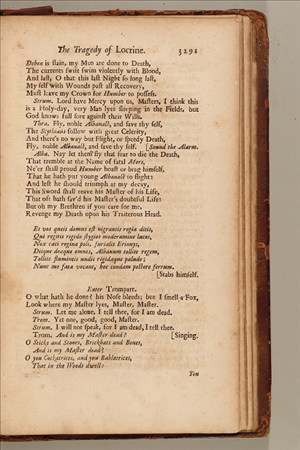 The Tragedy of Locrine. 3291
Debon is slain, my Men are done to Death,
The currents swift swim violently with Blood,
And last, O that this last Night so long last,
My self with Wounds past all Recovery,
Must leave my Crown for Humber to possess.
Strum. Lord have Mercy upon us, Masters, I think this
is a Holy-day, very Man lyes sleeping in the Fields, but
God knows full sore against their Wills.
Thra. Fly, noble Albanact, and save thy self,
The Scythians follow with great Celerity,
And there's no way but Flight, or speedy Death,
Fly, noble Albanact, and save thy self. [Sound the Alarm.
Alba. Nay let them fly that fear to die the Death,
That tremble at the Name of fatal Mors,
Ne'er shall proud Humber boast or brag himself,
That he hath put young Albanact to flight;
And lest he should triumph at my decay,
This Sword shall reave his Master of his Life,
That oft hath sav'd his Master's doubtful Life:
But oh my Brethren if you care for me,
Revenge my Death upon his Traiterous Head.
Et vos queis domus est nigrantis regia ditis,
Qui regitis rigido stygios moderamine lucos,
Nox cæci regina poli, furialis Erinnys,
Diique deæque omnes, Albanum tollite regem,
Tollite flumineis undis rigidaque palude;
Nunc me fata vocant, hoc condam pectore ferrum.
[Stabs himself.
Enter Trompart.
O what hath he done? his Nose bleeds; but I smell a Fox,
Look where my Master lyes, Master, Master.
Strum. Let me alone, I tell thee, for I am dead.
Trom. Yet one, good, good, Master.
Strum. I will not speak, for I am dead, I tell thee.
Trom. And is my Master dead? [Singing.
O Sticks and Stones, Brickbats and Bones,
And is my Master dead?
O you Cockatrices, and you Bablatrices,
That in the Woods dwell:
You